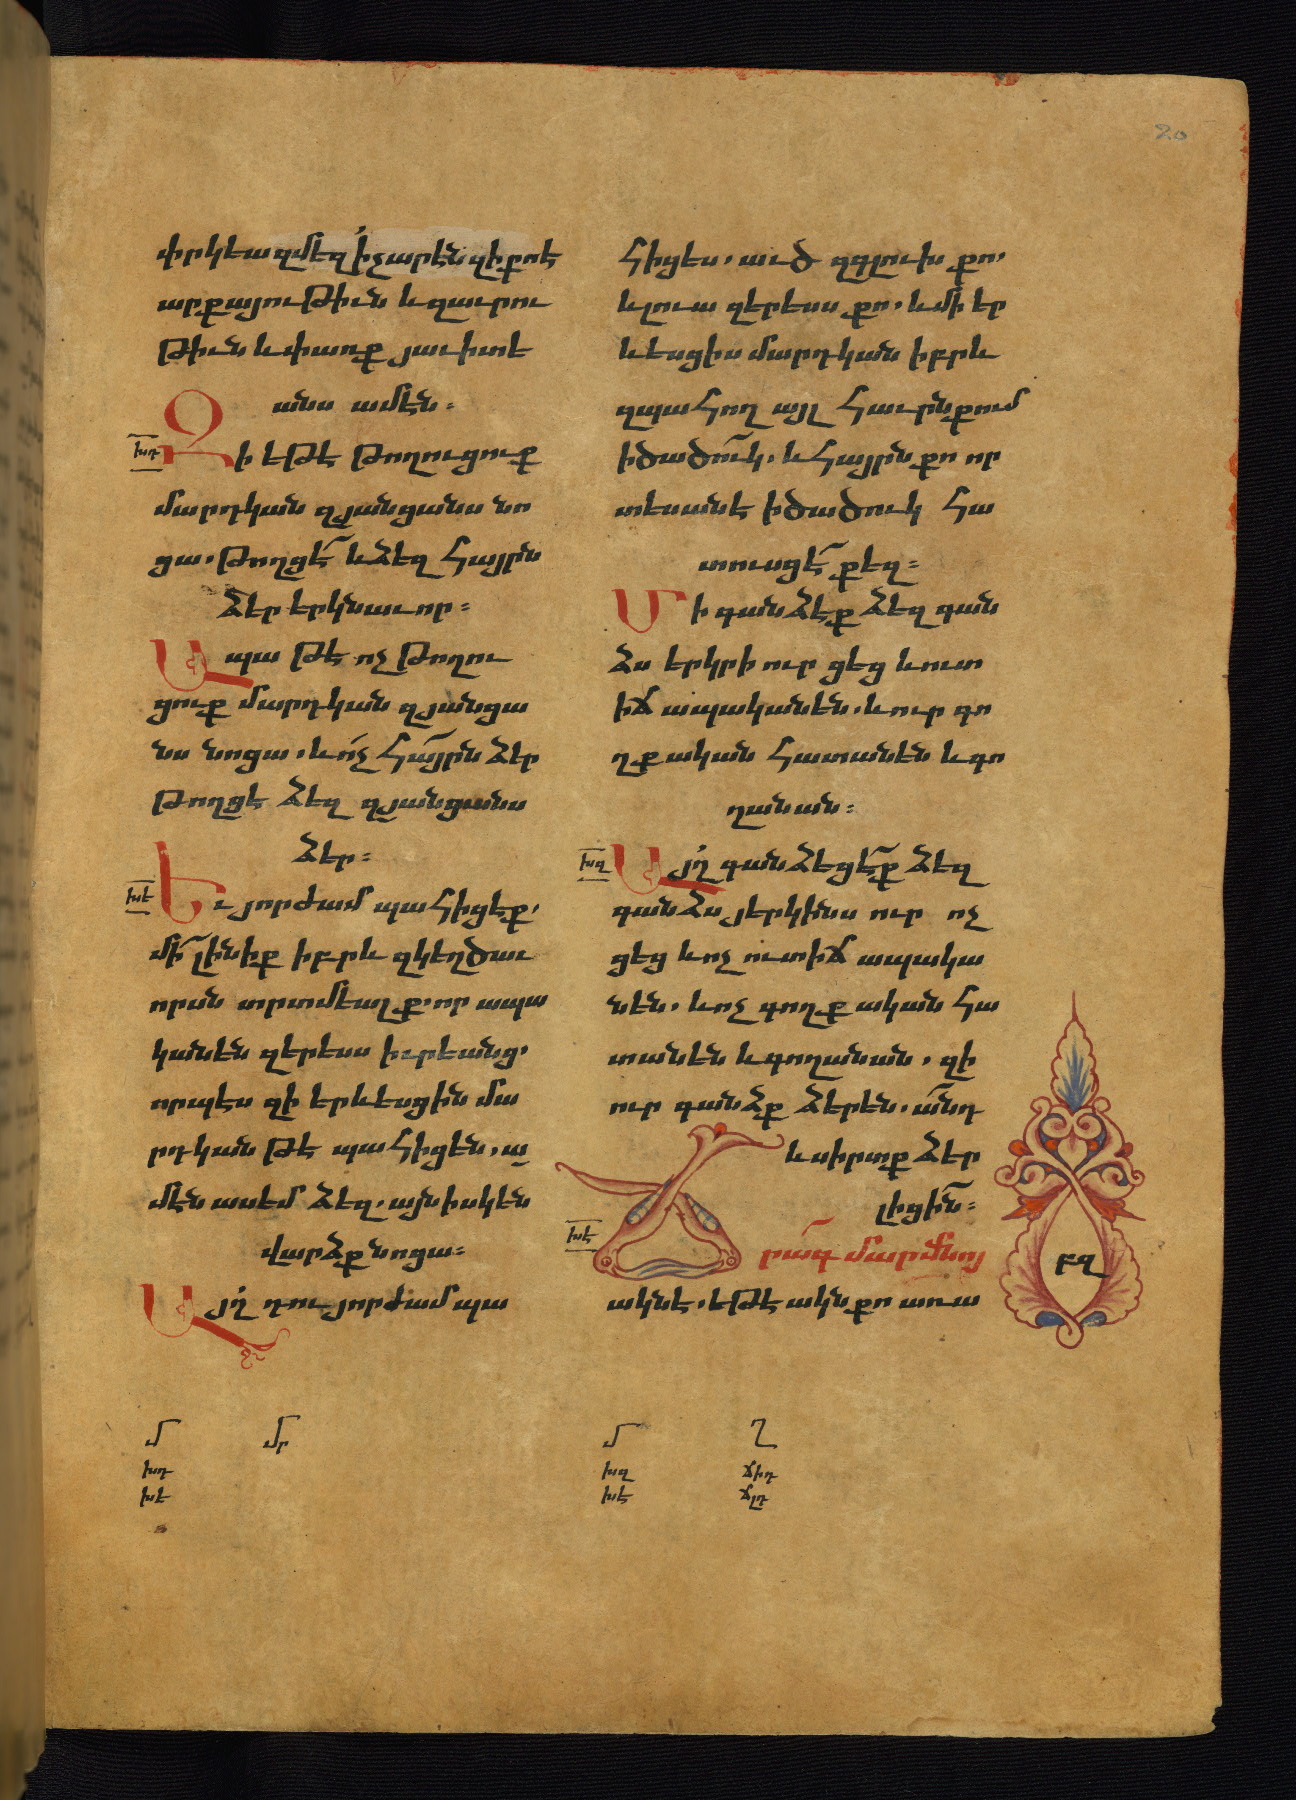 20
փրկեա զմեզ ի չարէն զի քո է
արքայութիւն և զաւրու
թիւն և փառք յաւիտե
անս ամէն։
խդ
Զի եթէ թողուցուք
մարդկան զյանցանս նո
ցա. թողցէ և ձեզ հայրն
ձեր երկնաւոր։
Ապա թէ ոչ թողու
ցուք մարդկան զյանցա
նս նոցա. և ոչ հայրն ձեր
թողցէ ձեզ զյանցանս
ձեր։
խե
Եւ յորժամ պահիցէք.
մի լինիք իբրև զկեղծաւ
որսն տրտմեալք. որ ապա
կանեն զերեսս իւրեանց.
որպէս զի երևեսցին մա
րդկան թէ պահիցեն. ա
մէն ասեմ ձեզ. այն իսկ են
վարձք նոցա։
Այղ դու յորժամ պա
հիցես. աւծ զգլուխ քո.
և լուա զերեսս քո. և մի եր
ևեսցիս մարդկան իբրև
զպահող այլ հաւրն քում
ի ծածուկ. և հայրն քո որ
տեսանէ ի ծածուկ հա
տուսցէ քեզ։
Մի գանձէք ձեզ գան
ձս երկրի ուր ցեց և ուտ
իճ ապականեն. և ուր գո
ղք ական հատանեն և գո
ղանան։
խզ
Այղ գանձեցէք ձեզ
գանձս յերկինս ուր ոչ
ցեց և ոչ ուտիճ ապակա
նեն. և ոչ գողք ական հա
տանեն և գողանան. զի
ուր գանձք ձերեն. անդ
և սիրտք ձեր
լիցին։
խէ
Ճրագ մարմնոյ
ակնէ. եթէ ակն քո առա
բզ
մ մր
խդ
խե
մ ղ
խզ ճիդ
խէ ճլդ